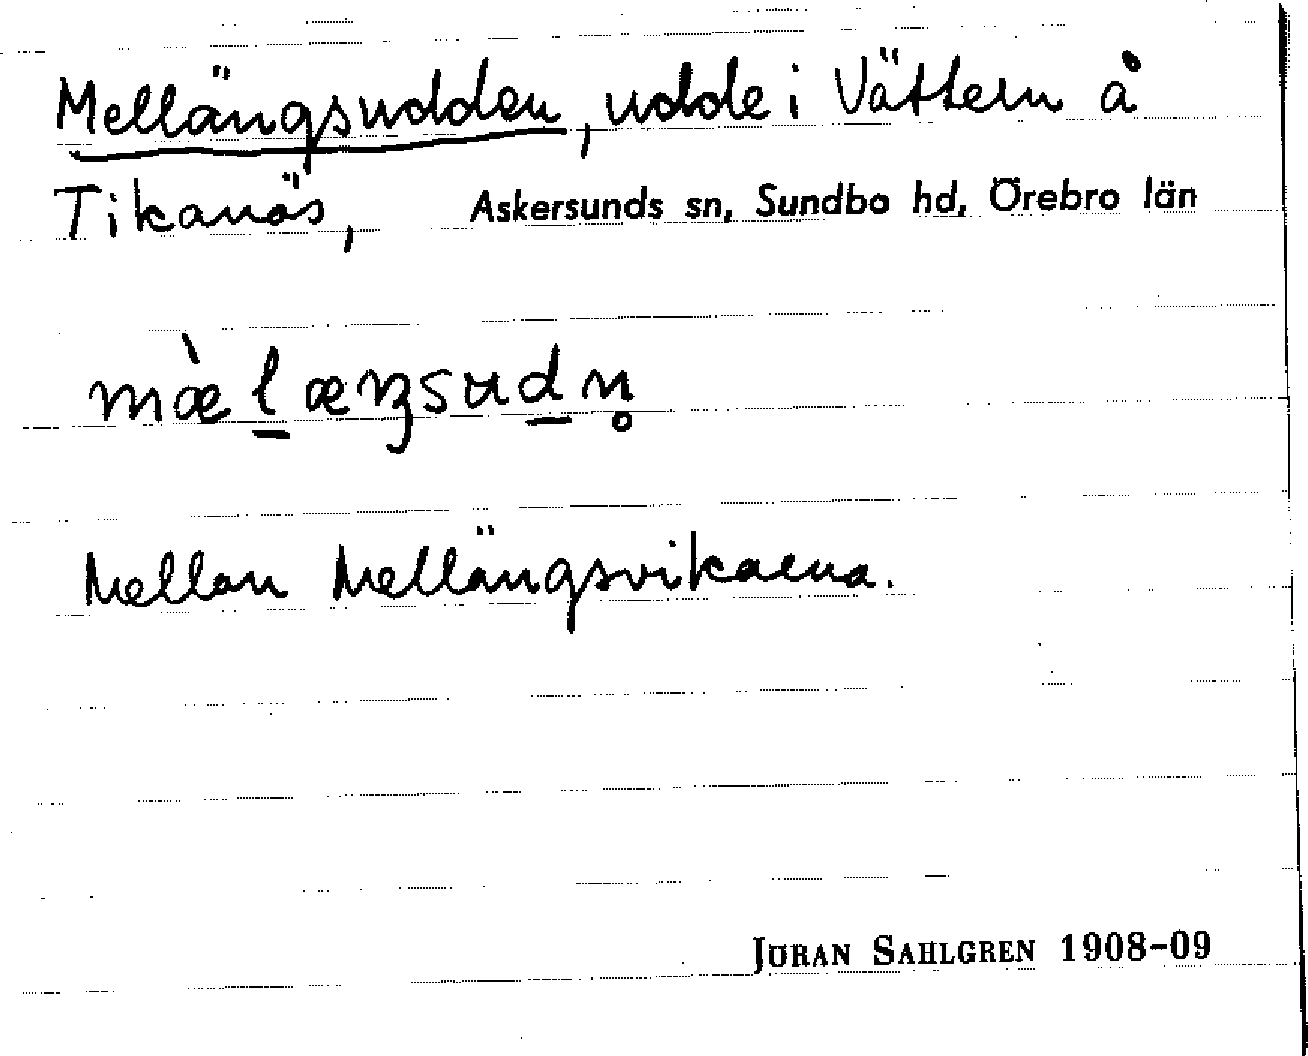 Mellängsudden, udde i Vättern å
Tikanäs, Askersunds sn, Sundbo hd, Örebro län
mæ̀l̲æŋsud̲n̥
Mellan Mellängsvikarna.
JÖRAN SAHLGREN 1908-09